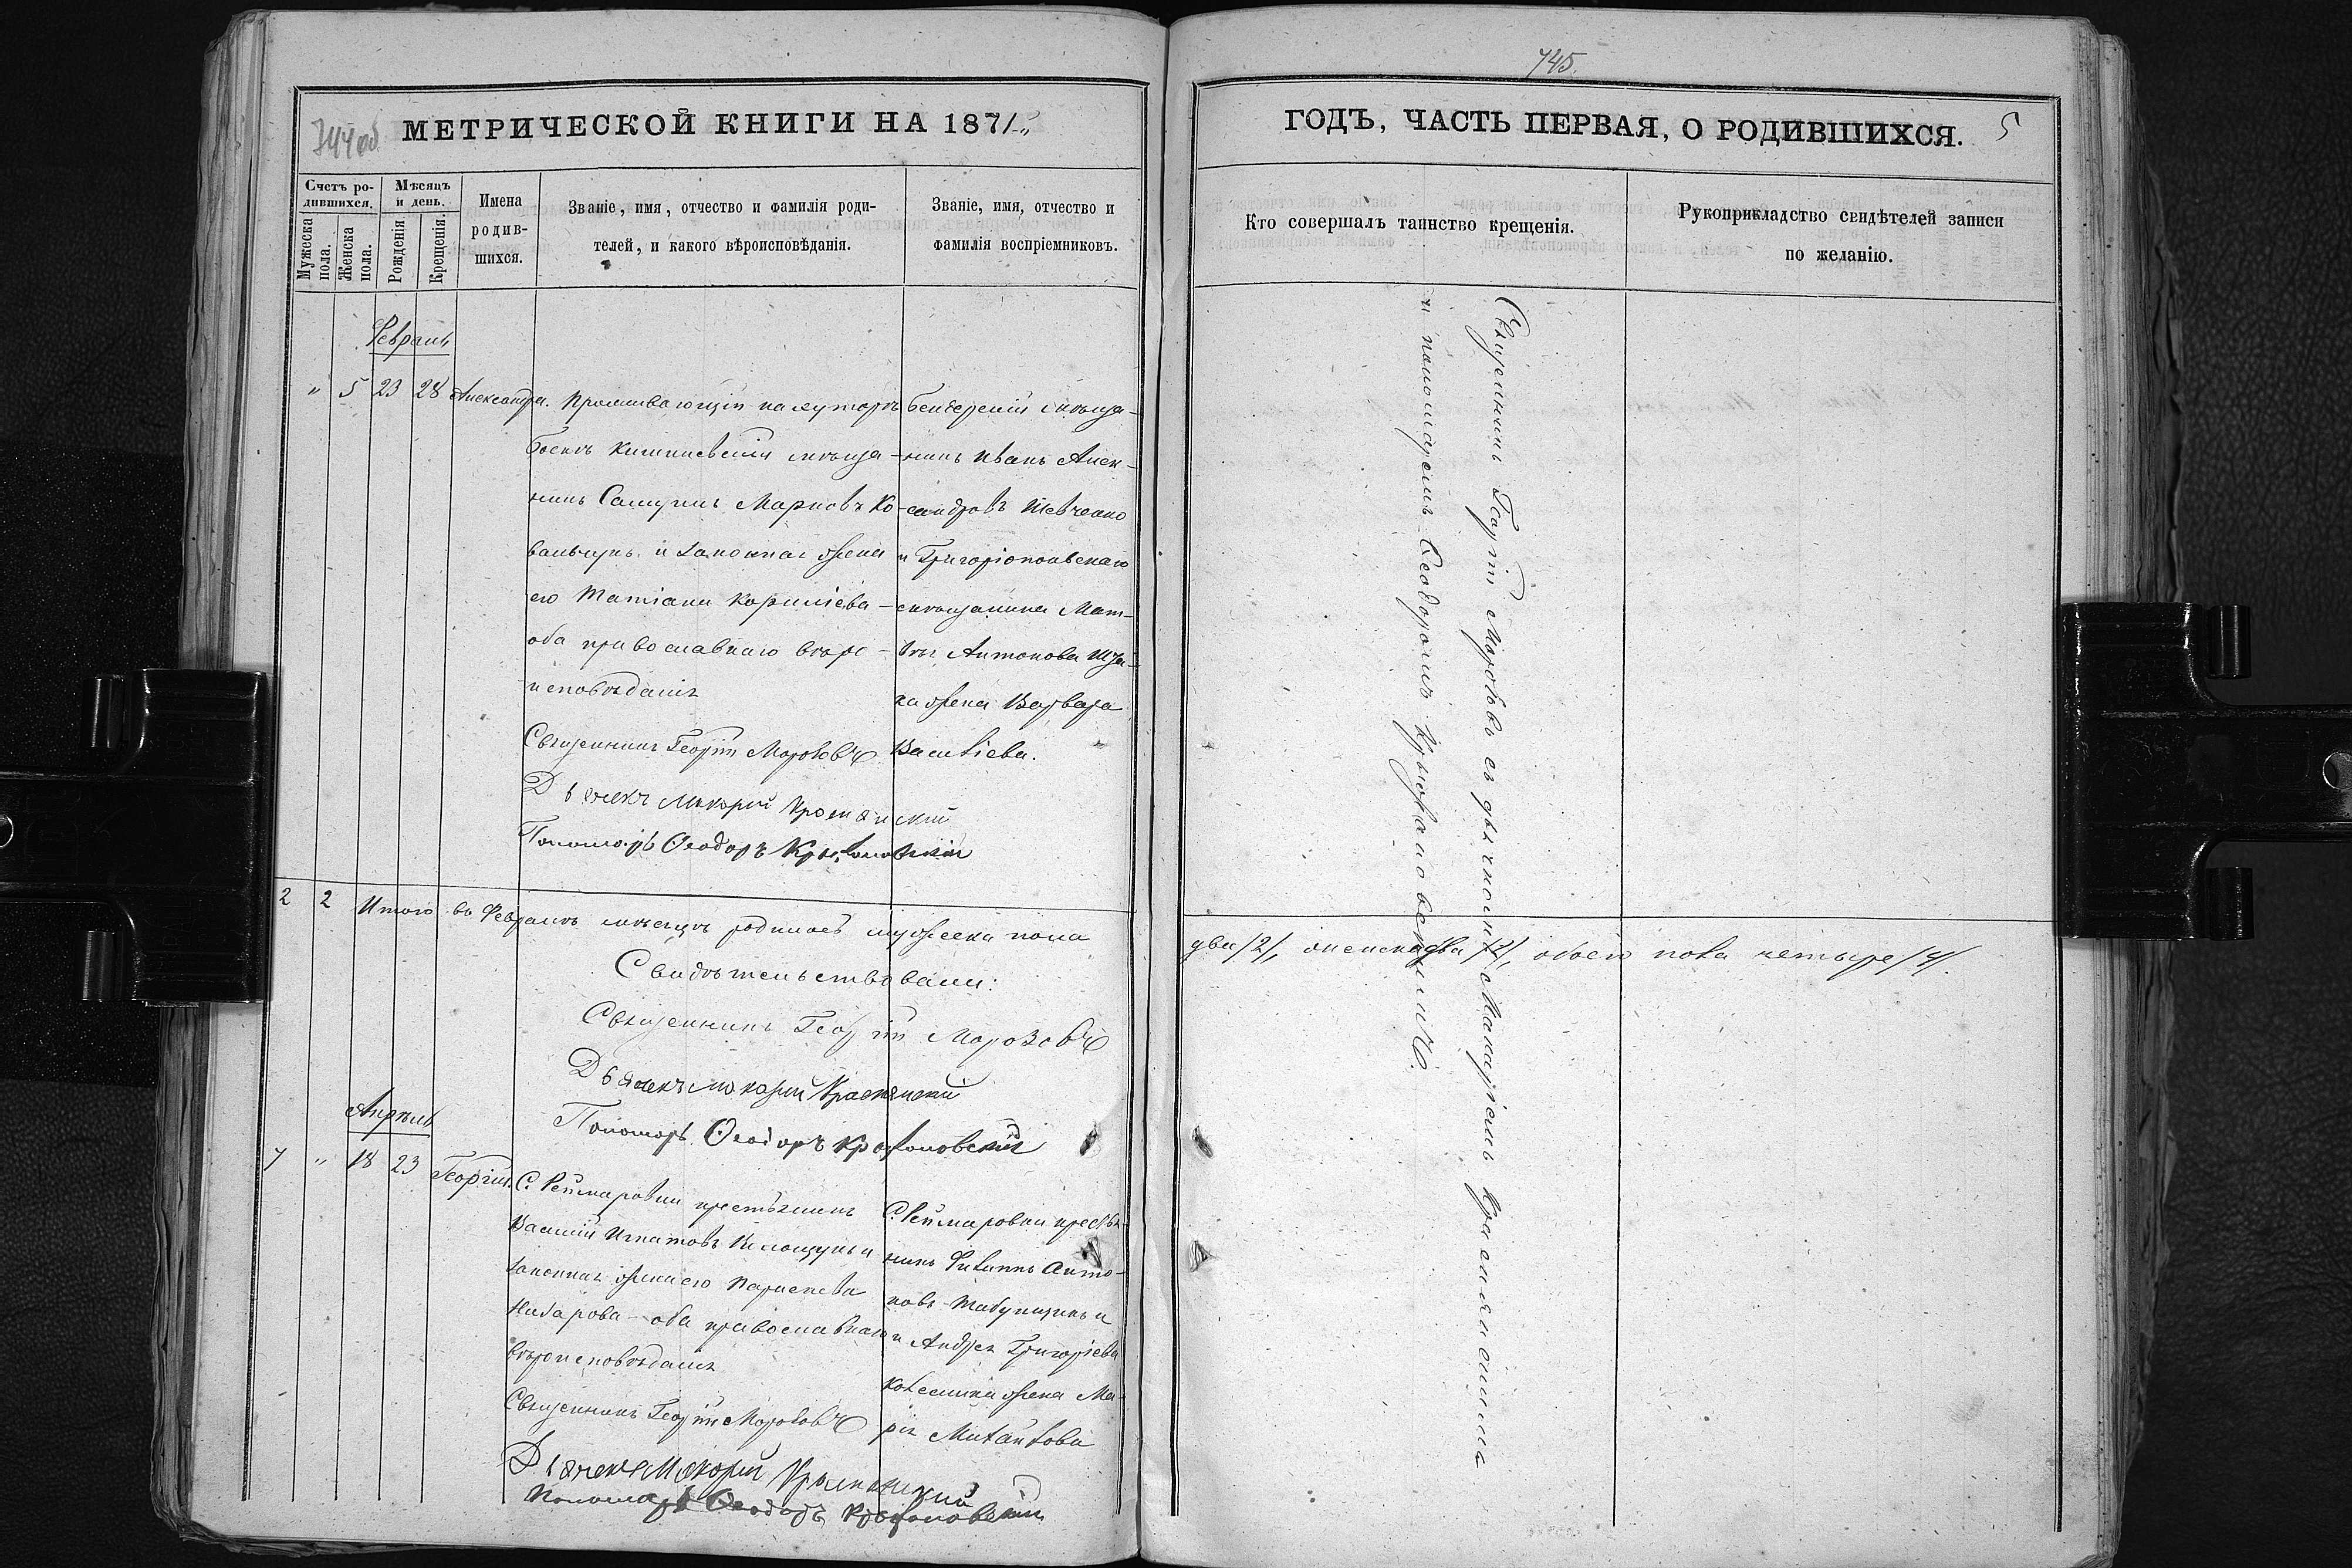 744об
МЕТРИЧЕСКОЙ КНИГИ НА 1871„
Счетъ ро-
дившихся.
Мѣсяцъ
и день.
Мужеска
пола.
Женска
пола.
Рожденія.
Крещенія.
Имена
родив-
шихся.
Званіе, имя, отчество и фамилія роди-
телей, и какого вѣроисповѣданія.
Званіе, имя, отчество и
фамилія воспріемниковъ.
Февраль
„ 5 23 28 Александра.
Проживающій на хуторѣ
кишиневскій мѣща-
нинъ Самуилъ Марковъ Ко-
вальчукъ и законная жена
его Татіана Корнилiева -
оба православнаго вѣро-
исповѣданія
Священникъ Георгій Морозовъ
Дьячекъ Макарій
Пономарь Ѳеодоръ
Бендерскій мѣща-
нинъ Иванъ Алек-
сандровъ Шевченко
и Григоріопольскаго
мѣщанина Мат-
вѣя Антонова
жена Варвара
Василіева.
2 2 Итого въ Февралѣ мѣсяцѣ родилось мужеска пола
Свидѣтельствовали:
Священникъ Георгій Морозовъ
Дьячекъ Макарій
Пономарь Ѳеодоръ
Апрѣль
7 „ 18 23 Георгій.
С. Реймаровки крестьянинъ
Василій Игнатовъ и
законная жена его Параскева
Назарова - оба православнаго
вѣроисповѣданія
Священникъ Георгій Морозовъ
Дьячекъ Макарій
Пономарь Ѳеодоръ
С. Реймаровки крестья-
нинъ Филиппъ Анто-
новъ
и Андрея Григоріева
Колесника жена Ма-
рія Михайлова
745
ГОДЪ, ЧАСТЬ ПЕРВАЯ, О РОДИВШИХСЯ. 5
Кто совершалъ таинство крещенія.
Рукоприкладство свидѣтелей записи
по желанію.
Священникъ Георгій Морозовъ съ дьячкомъ Макаріемъ
и пономаремъ Ѳеодоромъ
два /2/, женска два /2/, обоего пола четыре /4/.